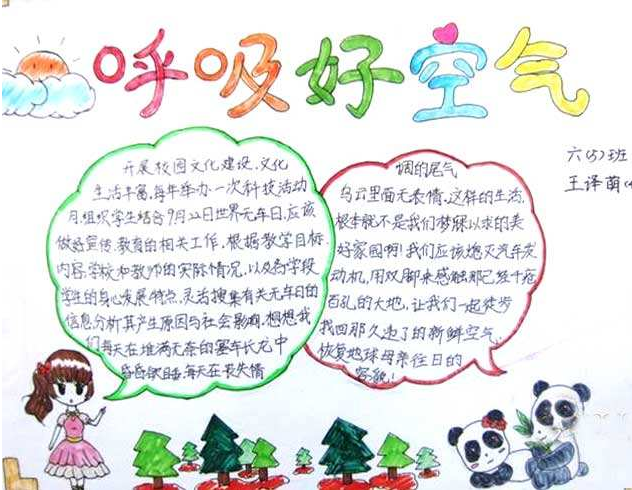 呼吸好空气
六(5)班
王译萌
开展校园文化建设,文化
生活丰富,每年举办一次科技活动
月,组织学生结合9月22日世界无车日,应该
做好宣传、教育的相关工作,根据教学目标、
内容,学校和教师的实际情况,以及各学段
学生的身心发展特点,灵活搜集有关无车日的
信息,分析其产生原因与社会影响,想想我
们每天在堆满无奈的塞车长龙中
昏昏欲睡,每天在丧失情
调的尾气
乌云里面无表情,这样的生活,
根本就不是我们梦寐以求的美
好家园啊!我们应该熄灭汽车发
动机,用双脚来感触那已经千疮
百孔的大地,让我们一起徒步
找回那久违了的新鲜空气,
恢复地球母亲往日的
容貌!